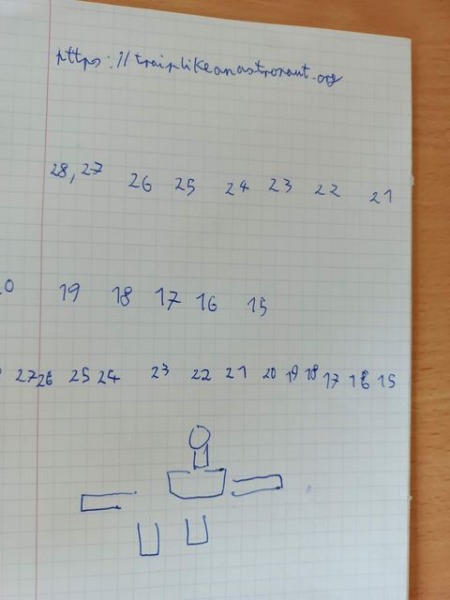 https://trainlikeanastronaut.org
28, 27 26 25 24 23 22 21
0 19 18 17 16 15
27 26 25 24 23 22 21 20 19 18 17 16 15